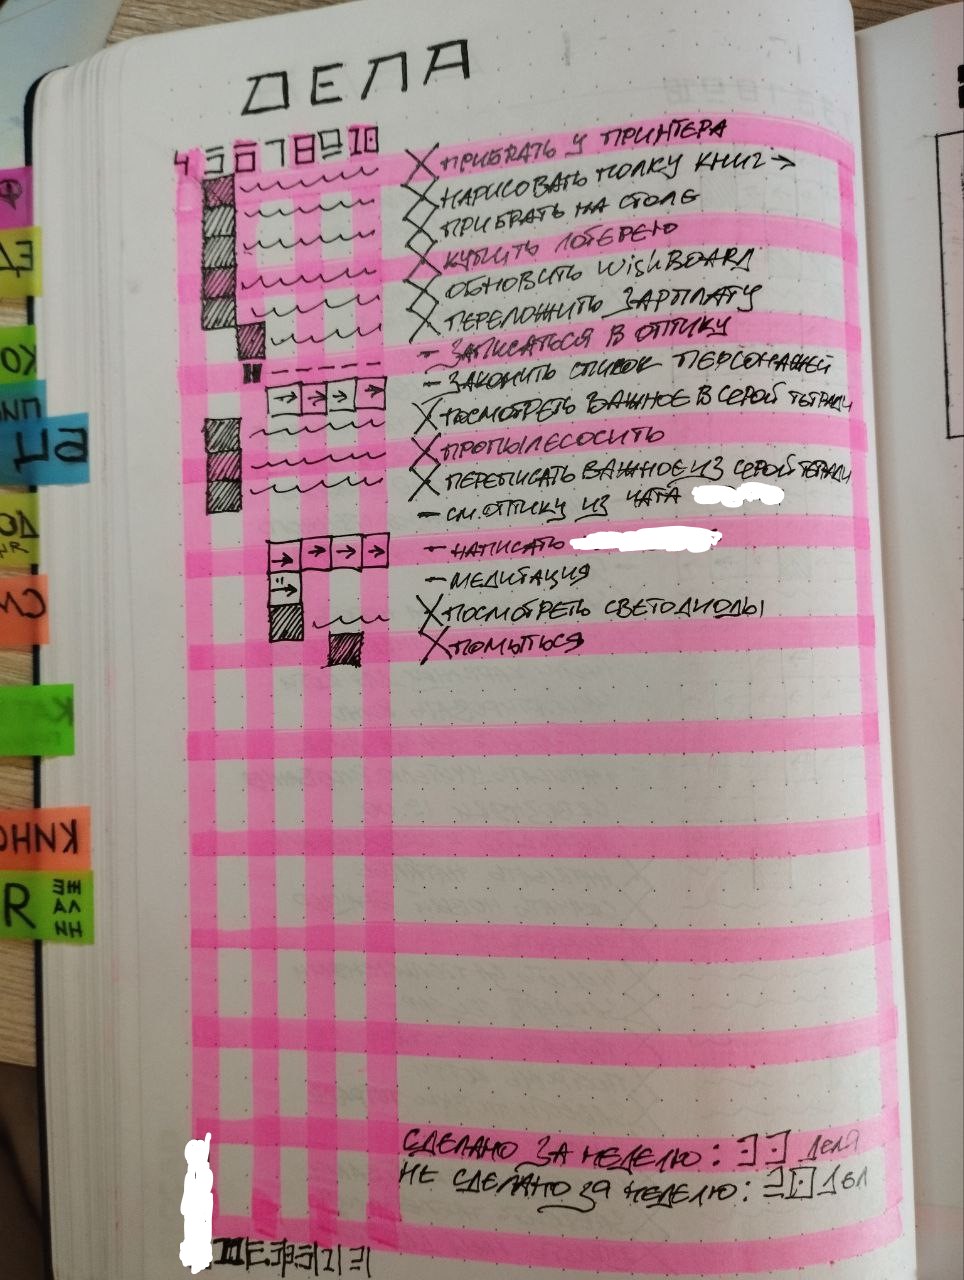 ДЕЛА
4 5 6 7 8 9 10
ПРИБРАТЬ У ПРИНТЕРА
НАРИСОВАТЬ ПОЛКУ КНИГ →
ПРИБРАТЬ НА СТОЛЕ
КУПИТЬ ЛОТЕРЕЮ
ОБНОВИТЬ WISHBOARD
ПЕРЕЛОЖИТЬ ЗАРПЛАТУ
- ЗАПИСАТЬСЯ В ОПТИКУ
- ЗАКОНЧИТЬ СПИСОК ПЕРСОНАЖЕЙ
ПОСМОТРЕТЬ ВАЖНОЕ В СЕРОЙ ТЕТРАДИ
ПРОПЫЛЕСОСИТЬ
ПЕРЕПИСАТЬ ВАЖНОЕ ИЗ СЕРОЙ ТЕТРАДИ
- СМ. ОПТИКУ ИЗ ЧАТА
- НАПИСАТЬ
- МЕДИТАЦИЯ
ПОСМОТРЕТЬ СВЕТОДИОДЫ
ПОМЫТЬСЯ
СДЕЛАНО ЗА НЕДЕЛЮ: 33 ДЕЛА
НЕ СДЕЛАНО ЗА НЕДЕЛЮ: 20 ДЕЛ
ЕД
КО
ЦА
СМ
КИНО
R